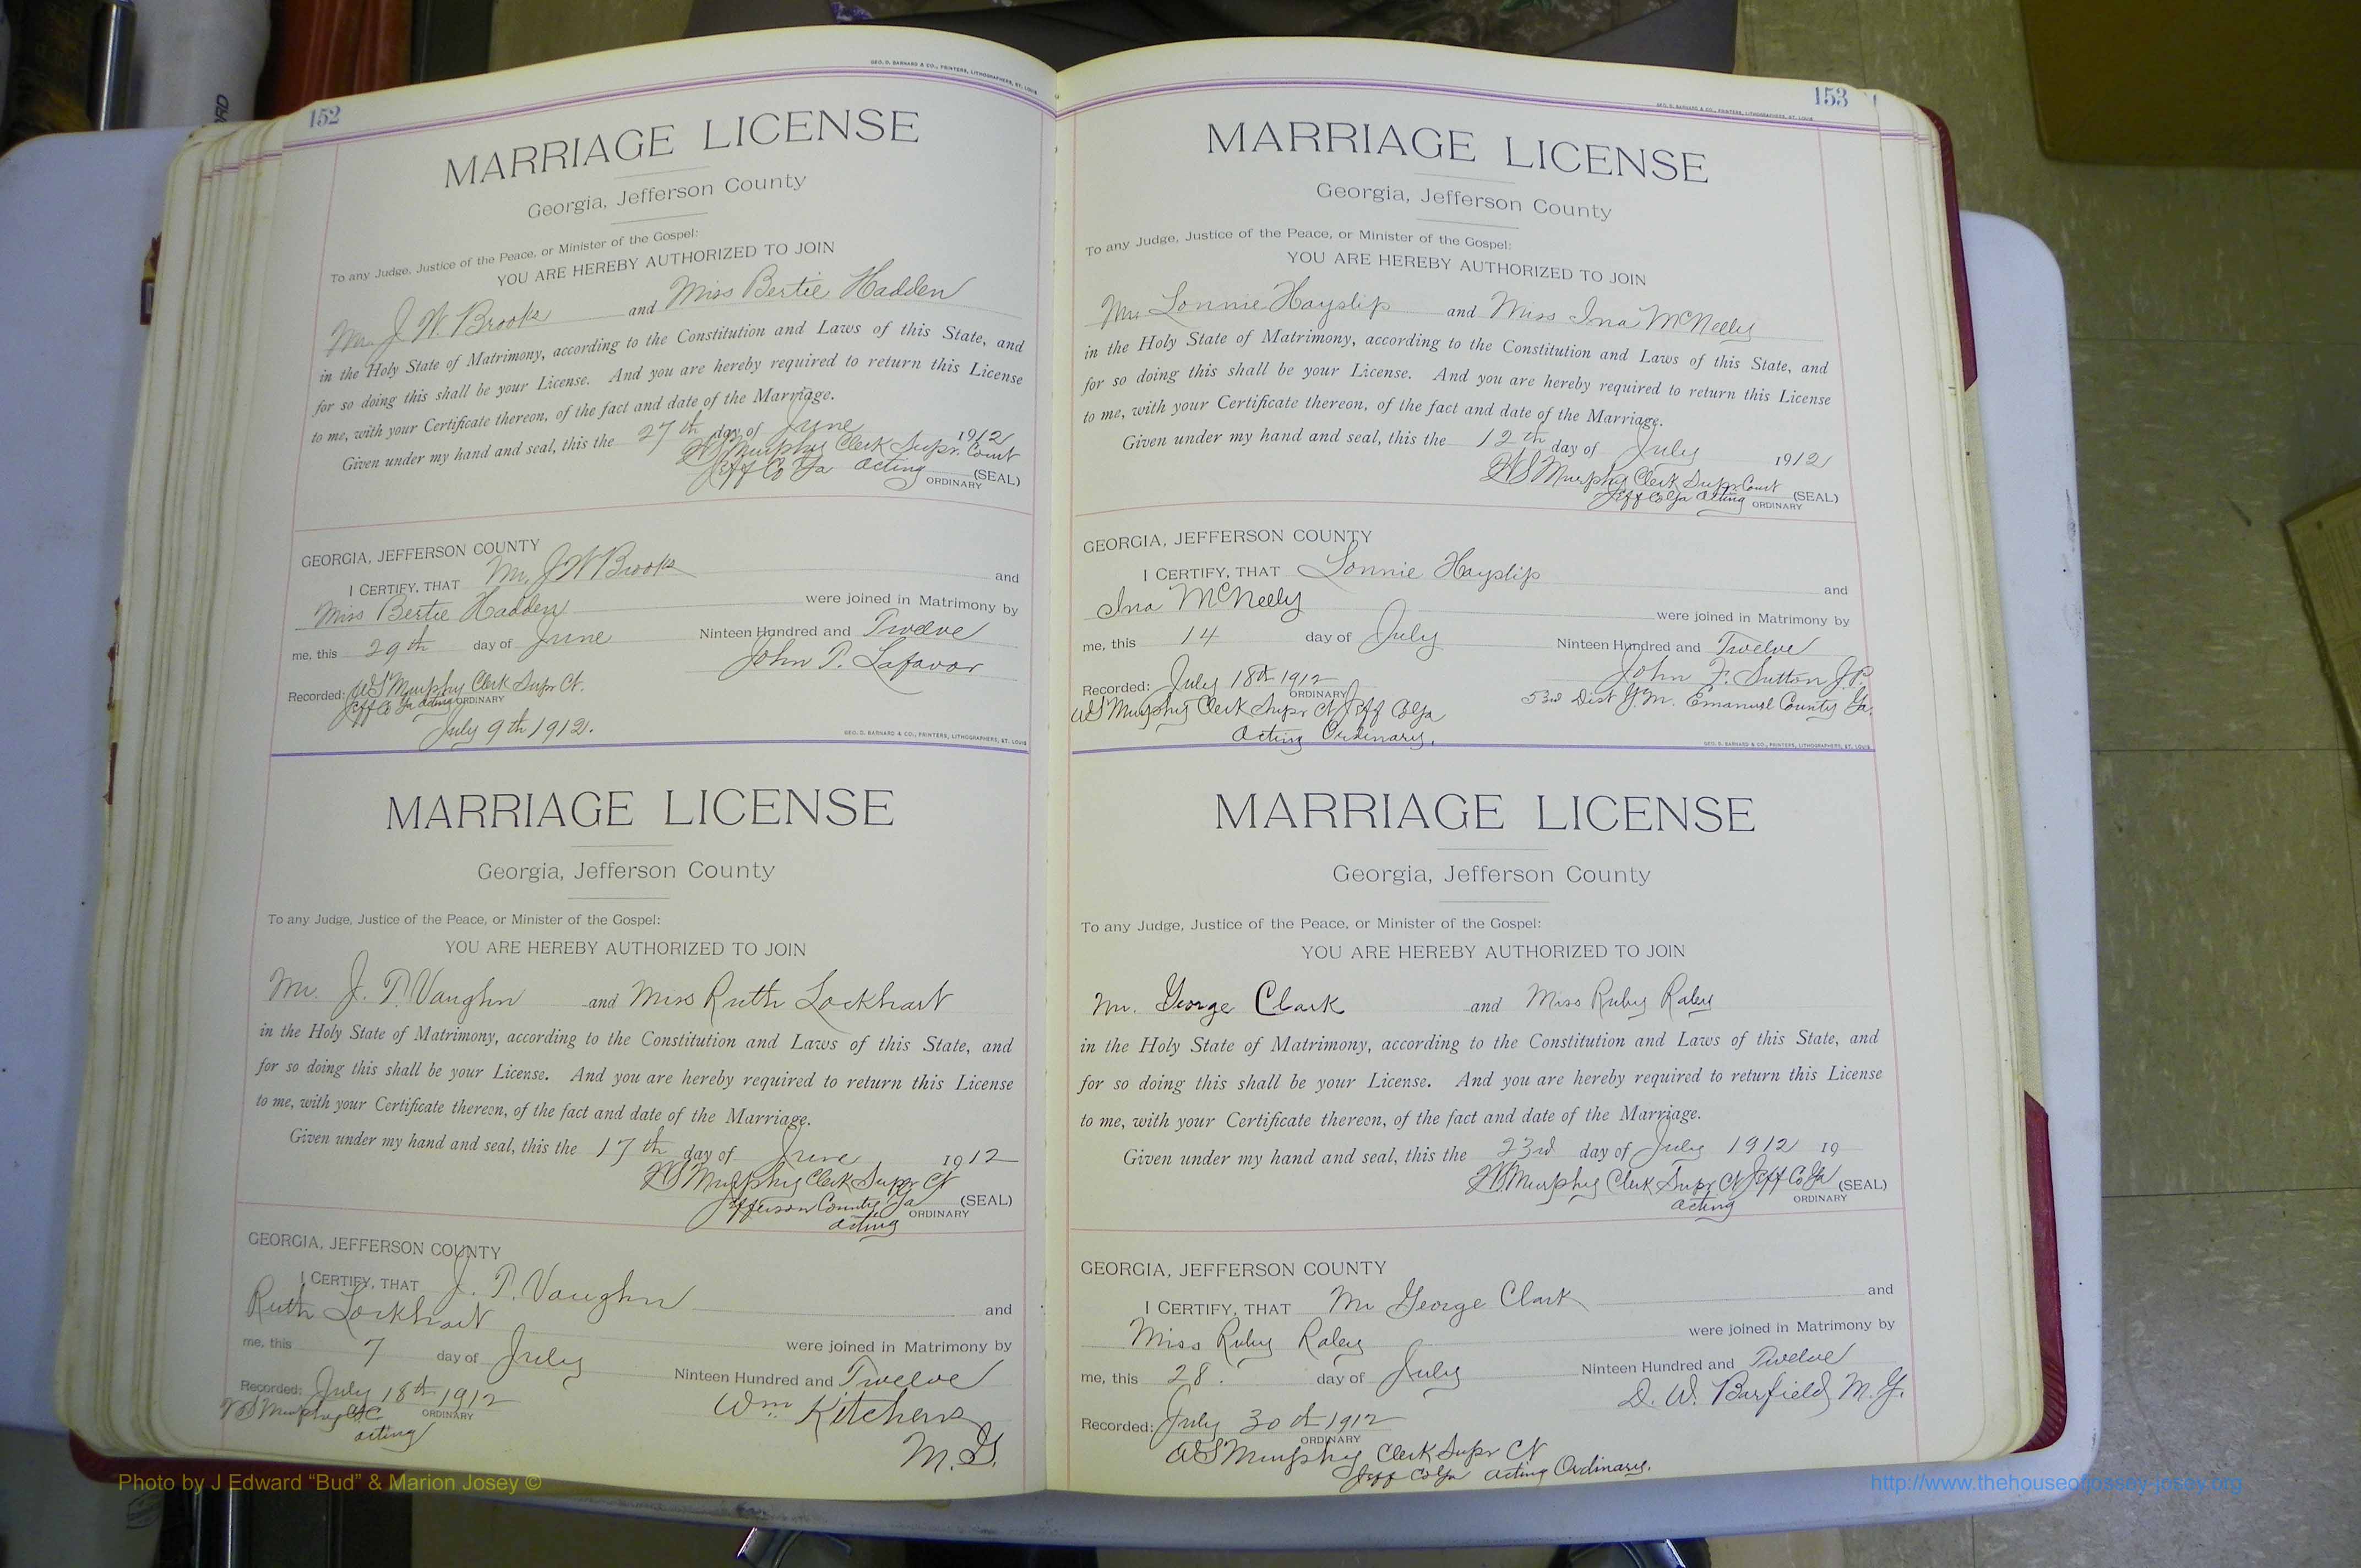 152
GEO. D. BARNARD & CO., PRINTERS, LITHOGRAPHERS, ST. LOUIS
MARRIAGE LICENSE
Georgia, Jefferson County
To any Judge, Justice of the Peace, or Minister of the Gospel:
YOU ARE HEREBY AUTHORIZED TO JOIN
Mr. J W Brooks and Miss Bertie Hadden
in the Holy State of Matrimony, according to the Constitution and Laws of this State, and
for so doing this shall be your License. And you are hereby required to return this License
to me, with your Certificate thereon, of the fact and date of the Marriage.
Given under my hand and seal, this the 27th day of June 1912
Murphy Clerk Supr. Court
Jeff Co Ga Acting ORDINARY (SEAL)
GEORGIA, JEFFERSON COUNTY
I CERTIFY, THAT Mr. J W Brooks and
Miss Bertie Hadden were joined in Matrimony by
me, this 29th day of June Ninteen Hundred and Twelve
John P. Lafavor
Recorded: Murphy Clerk Supr Ct.
Jeff Co Ga Acting ORDINARY
July 9th 1912.
GEO. D. BARNARD & CO., PRINTERS, LITHOGRAPHERS, ST. LOUIS
MARRIAGE LICENSE
Georgia, Jefferson County
To any Judge, Justice of the Peace, or Minister of the Gospel:
YOU ARE HEREBY AUTHORIZED TO JOIN
Mr. J. P. Vaughn and Miss Ruth Lockhart
in the Holy State of Matrimony, according to the Constitution and Laws of this State, and
for so doing this shall be your License. And you are hereby required to return this License
to me, with your Certificate thereon, of the fact and date of the Marriage.
Given under my hand and seal, this the 17th day of June 1912
Murphy Clerk Supr Ct
Jefferson County Ga (SEAL)
ORDINARY
Acting
GEORGIA, JEFFERSON COUNTY
I CERTIFY, THAT J. P. Vaughn and
Ruth Lockhart were joined in Matrimony by
me, this 7 day of July Ninteen Hundred and Twelve
Recorded: July 18th 1912 Wm Kitchens
Murphy CSC ORDINARY
acting M. G.
153
GEO. D. BARNARD & CO., PRINTERS, LITHOGRAPHERS, ST. LOUIS
MARRIAGE LICENSE
Georgia, Jefferson County
To any Judge, Justice of the Peace, or Minister of the Gospel:
YOU ARE HEREBY AUTHORIZED TO JOIN
Mr Lonnie Hayslip and Miss Ina McNeely
in the Holy State of Matrimony, according to the Constitution and Laws of this State, and
for so doing this shall be your License. And you are hereby required to return this License
to me, with your Certificate thereon, of the fact and date of the Marriage.
Given under my hand and seal, this the 12th day of July 1912
Murphy Clerk Supr Court
Jeff Co Ga Acting ORDINARY (SEAL)
GEORGIA, JEFFERSON COUNTY
I CERTIFY, THAT Lonnie Hayslip and
Ina McNeely were joined in Matrimony by
me, this 14 day of July Ninteen Hundred and Twelve
Recorded: July 18th 1912 ORDINARY John F. Sutton J.P.
Murphy Clerk Supr Ct Jeff Co Ga 53rd Dist G.M. Emanuel County Ga.
Acting Ordinary.
GEO. D. BARNARD & CO., PRINTERS, LITHOGRAPHERS, ST. LOUIS
MARRIAGE LICENSE
Georgia, Jefferson County
To any Judge, Justice of the Peace, or Minister of the Gospel:
YOU ARE HEREBY AUTHORIZED TO JOIN
Mr. George Clark and Miss Ruby Raley
in the Holy State of Matrimony, according to the Constitution and Laws of this State, and
for so doing this shall be your License. And you are hereby required to return this License
to me, with your Certificate thereon, of the fact and date of the Marriage.
Given under my hand and seal, this the 23rd day of July 1912 19
Murphy Clerk Supr Ct Jeff Co Ga (SEAL)
Acting ORDINARY
GEORGIA, JEFFERSON COUNTY
I CERTIFY, THAT Mr George Clark and
Miss Ruby Raley were joined in Matrimony by
me, this 28. day of July Ninteen Hundred and Twelve
D. W. Barfield M. G.
Recorded: July 30th 1912
ORDINARY
Murphy Clerk Supr Ct
Jeff Co Ga Acting Ordinary.
Photo by J Edward “Bud” & Marion Josey ©
http://www.thehouseofjossey-josey.org